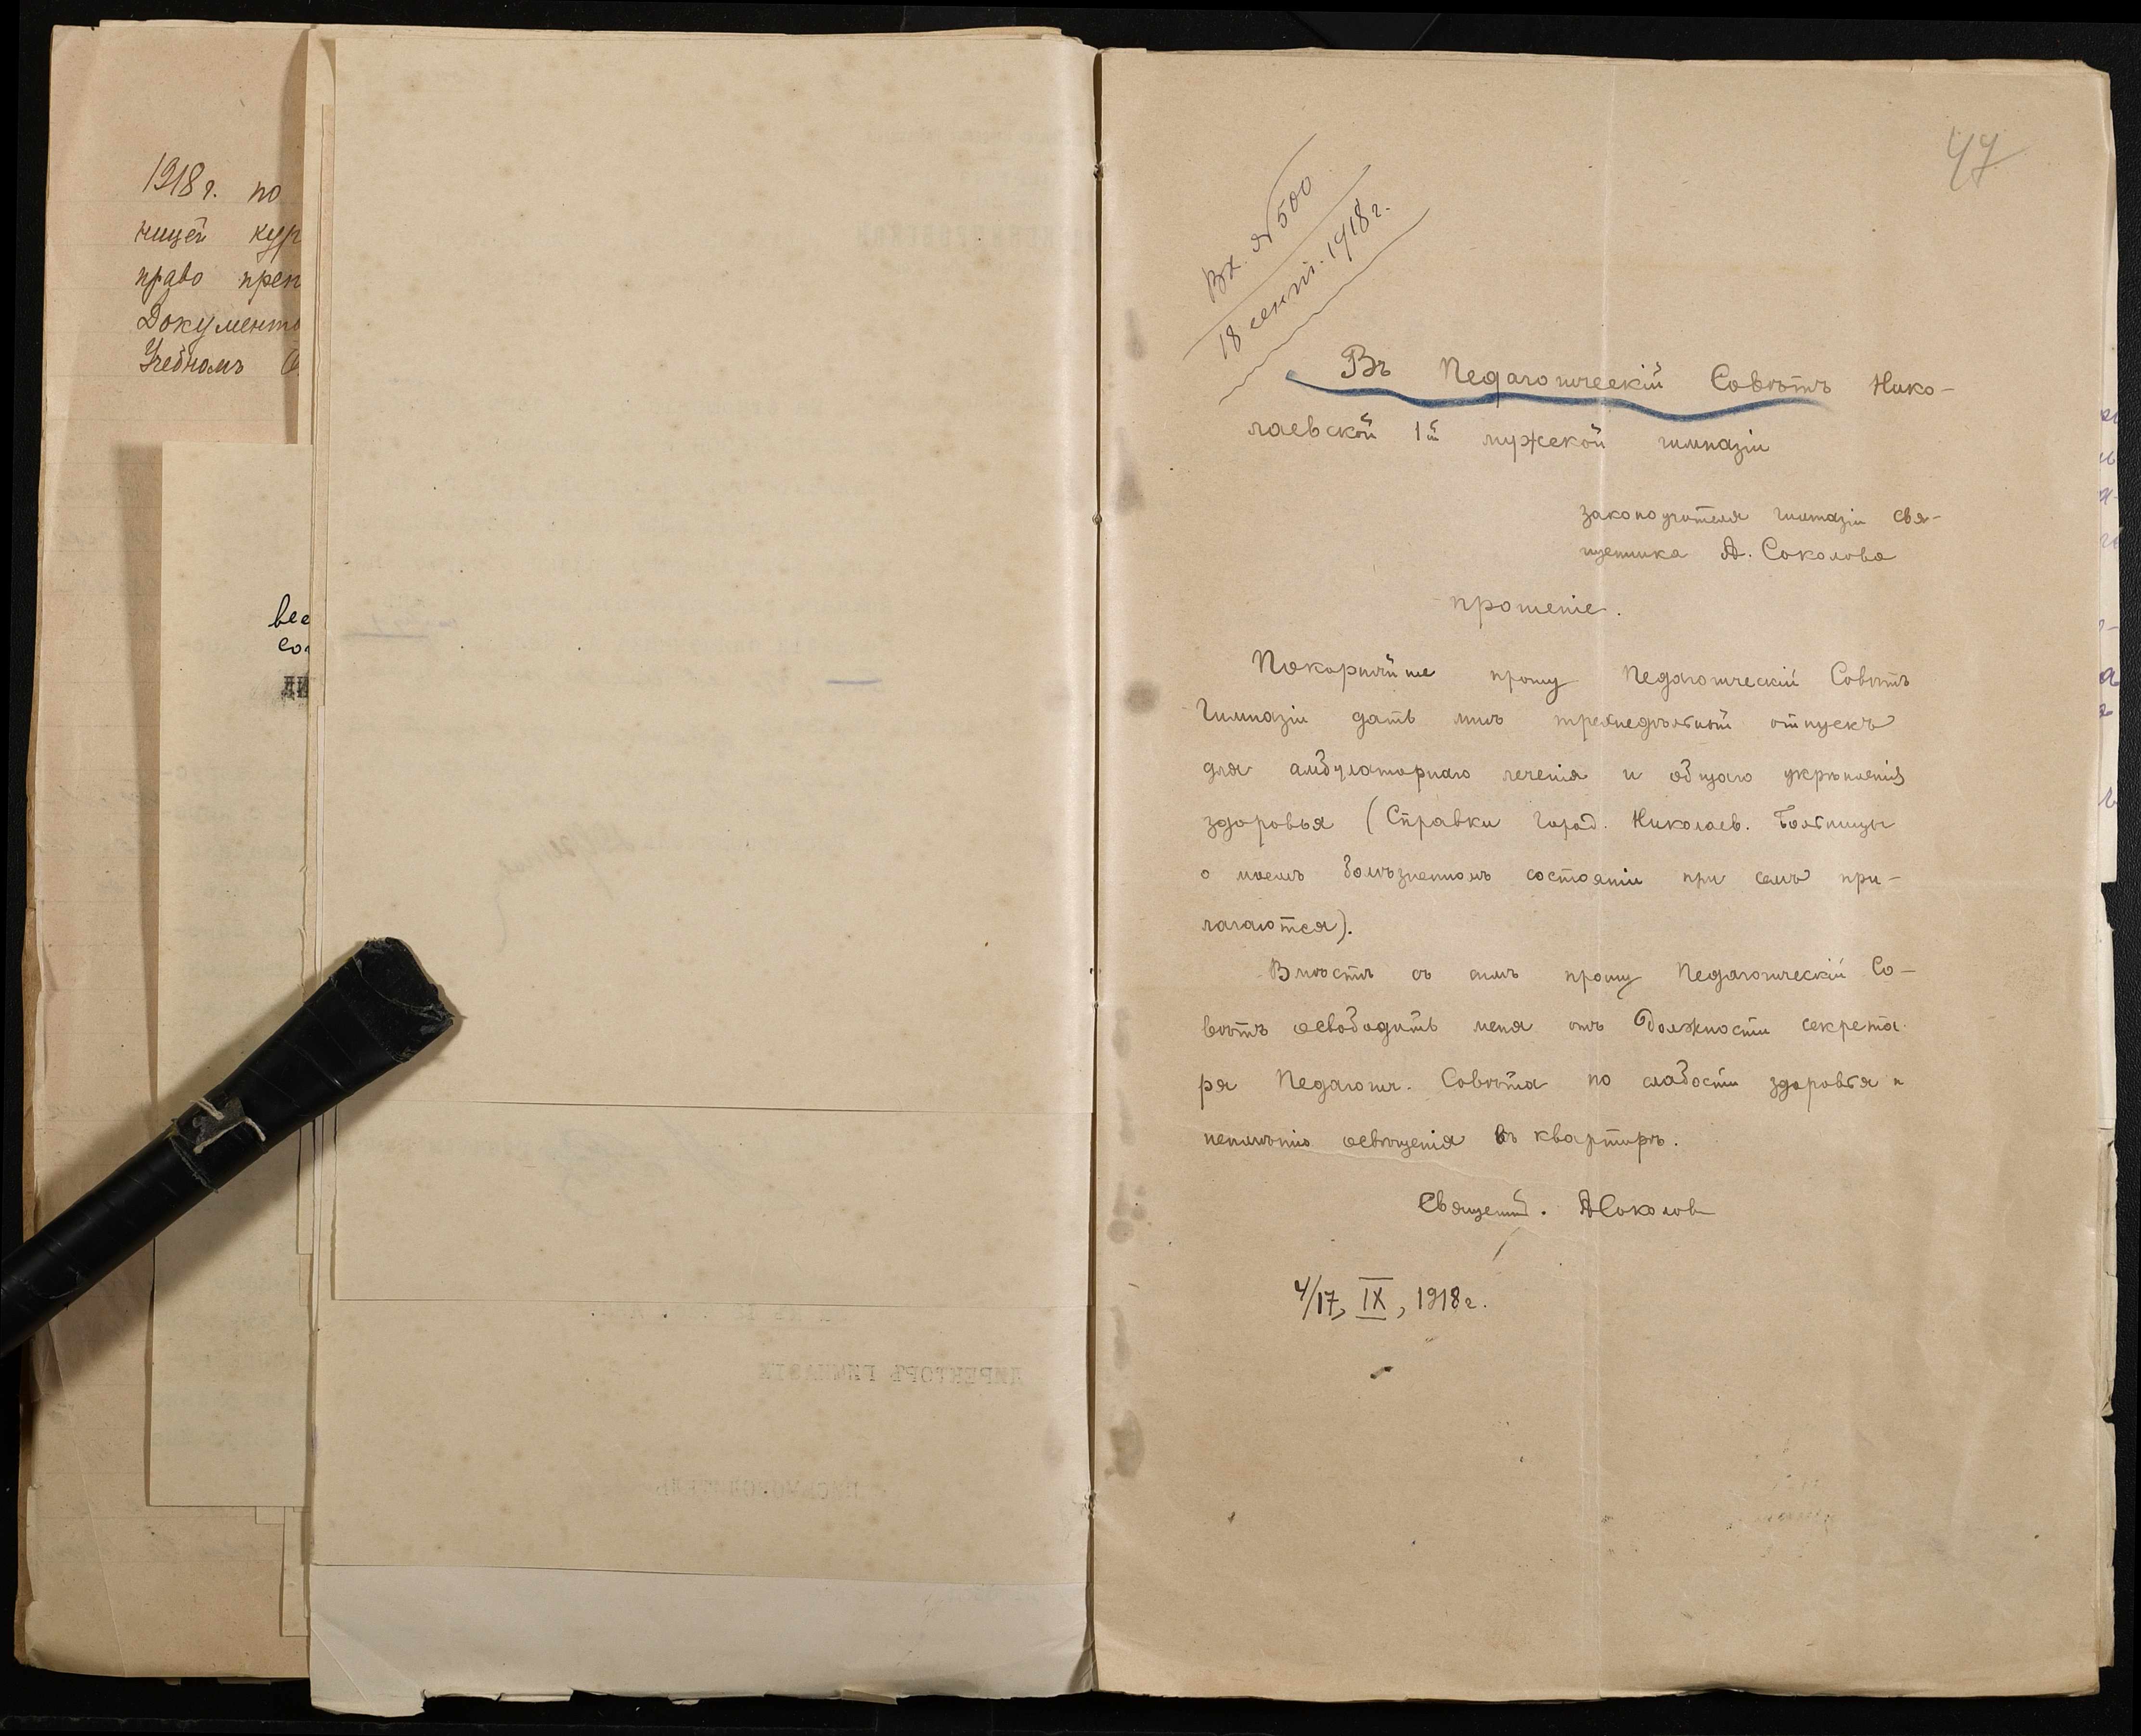 1918 г. по
ницей кур
право преп
Документ
Учебномъ
все
47
Вх. № 500
18 сент. 1918 г.
Въ Педагогическій Совѣтъ Нико-
лаевской 1й мужской гимназіи
законоучителя гимназіи свя-
щенника А. Соколова
прошеніе.
Покорнѣйше прошу Педагогическій Совѣтъ
Гимназіи дать мнѣ трехнедѣльный отпускъ
для амбулаторнаго леченія и общаго укрѣпленія
здоровья (Справки Город. Николаев. Больницы
о моемъ болѣзненномъ состояніи при семъ при-
лагаются).
Вмѣстѣ съ симъ прошу Педагогическій Со-
вѣтъ освободить меня отъ должности секрета-
ря Педагогич. Совѣта по слабости здоровья и
неимѣнію освѣщенія въ квартирѣ.
Священ. А Соколов
4/17, IX, 1918 г.
ДИРЕКТОРЪ ГИМНАЗІИ